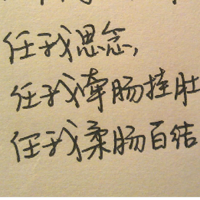 任我思念,
任我牵肠挂肚
任我柔肠百结